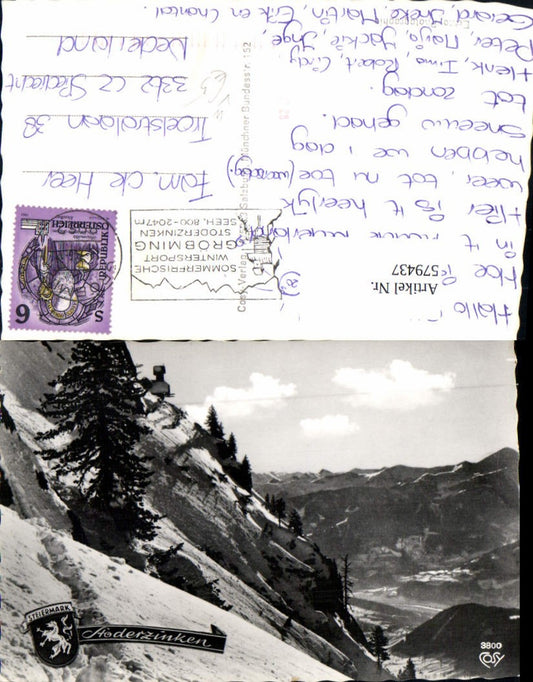 Hallo
Hoe is
Hier is 't heerlijk
weer, tot nu toe (woensdag)
hebben we 1 dag
sneeuw gehad.
tot zondag.
Henk, Irma, Robert, Cindy,
Peter, Maya, Jackie, Inge,
Gerard, Ineke, Martin, Erik en Chantal.
Fam. de Heer
38
3362 CZ Sliedrecht
Nederland
SOMMERFRISCHE
WINTERSPORT
GRÖBMING
STODERZINKEN
SEEH. 800-2047m
REPUBLIK
ÖSTERREICH
S 6
Cosy-Verlag
Salzburg
Münchner Bundesstr. 152
Artikel Nr.
579437
STEIERMARK
Stoderzinken
3800
Cosy